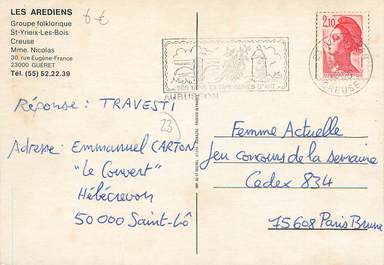 LES AREDIENS
Groupe folklorique
St-Yrieix-Les-Bois
Creuse
Mme. Nicolas
30, rue Eugène-France
23000 GUÉRET
Tél. (55) 52.22.39
6 €
2,10
AUBUSSON
CREUSE
Réponse : TRAVESTI
23
Adresse : Emmanuel CARTON
"Le Couvert"
Hébécrevon
50 000 Saint-Lô
Femme Actuelle
Jeu concours de la semaine
Cedex 834
75608 Paris Brune